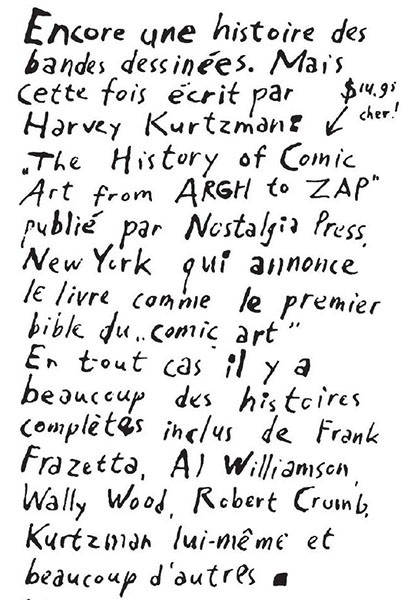 Encore une histoire des
bandes dessinées. Mais
cette fois écrit par
$14.95
cher!
Harvey Kurtzman:
„The History of Comic
Art from ARGH to ZAP"
publié par Nostalgia Press,
New York qui annonce
le livre comme le premier
bible du „comic art"
En tout cas il y a
beaucoup des histoires
complètes inclus de Frank
Frazetta, Al Williamson,
Wally Wood, Robert Crumb,
Kurtzman lui-même et
beaucoup d'autres